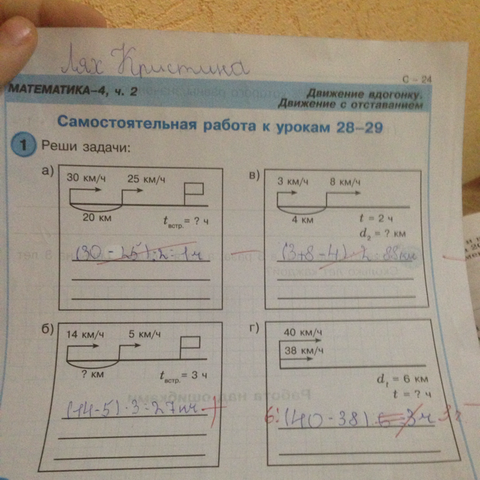 Лях Кристина
С – 24
МАТЕМАТИКА–4, ч. 2
Движение вдогонку.
Движение с отставанием
Самостоятельная работа к урокам 28–29
1 Реши задачи:
а)
30 км/ч 25 км/ч
20 км
tвстр.= ? ч
(30 - 25) : 2 = 1 ч
в)
3 км/ч 8 км/ч
4 км
t = 2 ч
d2 = ? км
(3+8-4) 2 88 км
б)
14 км/ч 5 км/ч
? км
tвстр.= 3 ч
(14-5)·3=27 км +
г)
40 км/ч
38 км/ч
d1 = 6 км
t = ? ч
6:(40-38) 3 ч 3ч